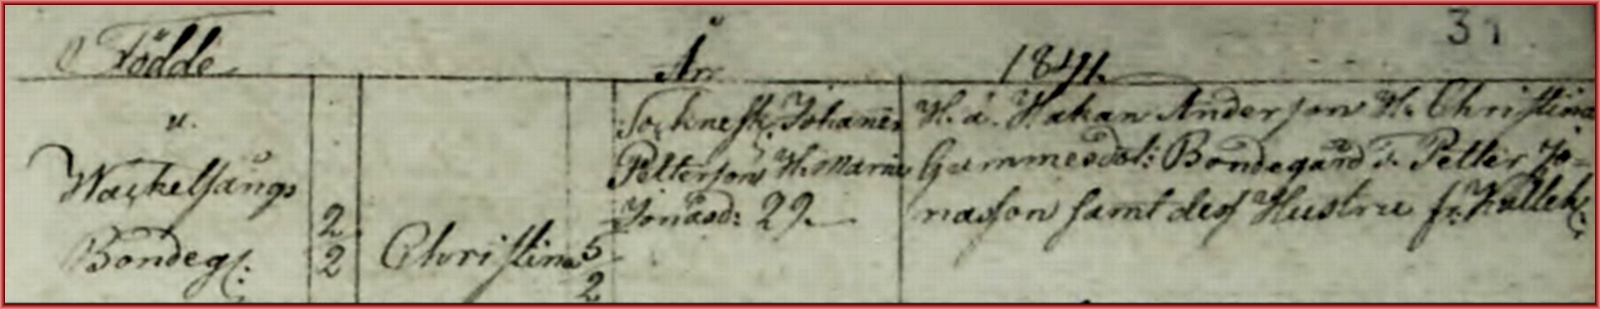 31
Födde År 1841.
u.
Wackelsångs
Bondeg:
2
2
Christina
5
2
Socknesk: Johanes
Petterson H. Maria
Jonasd: 29.
H. d. Håkan Anderson H. Christina
Gummesdot: Bondegård d. Petter Jo=
nason samt dess Hustru fr.